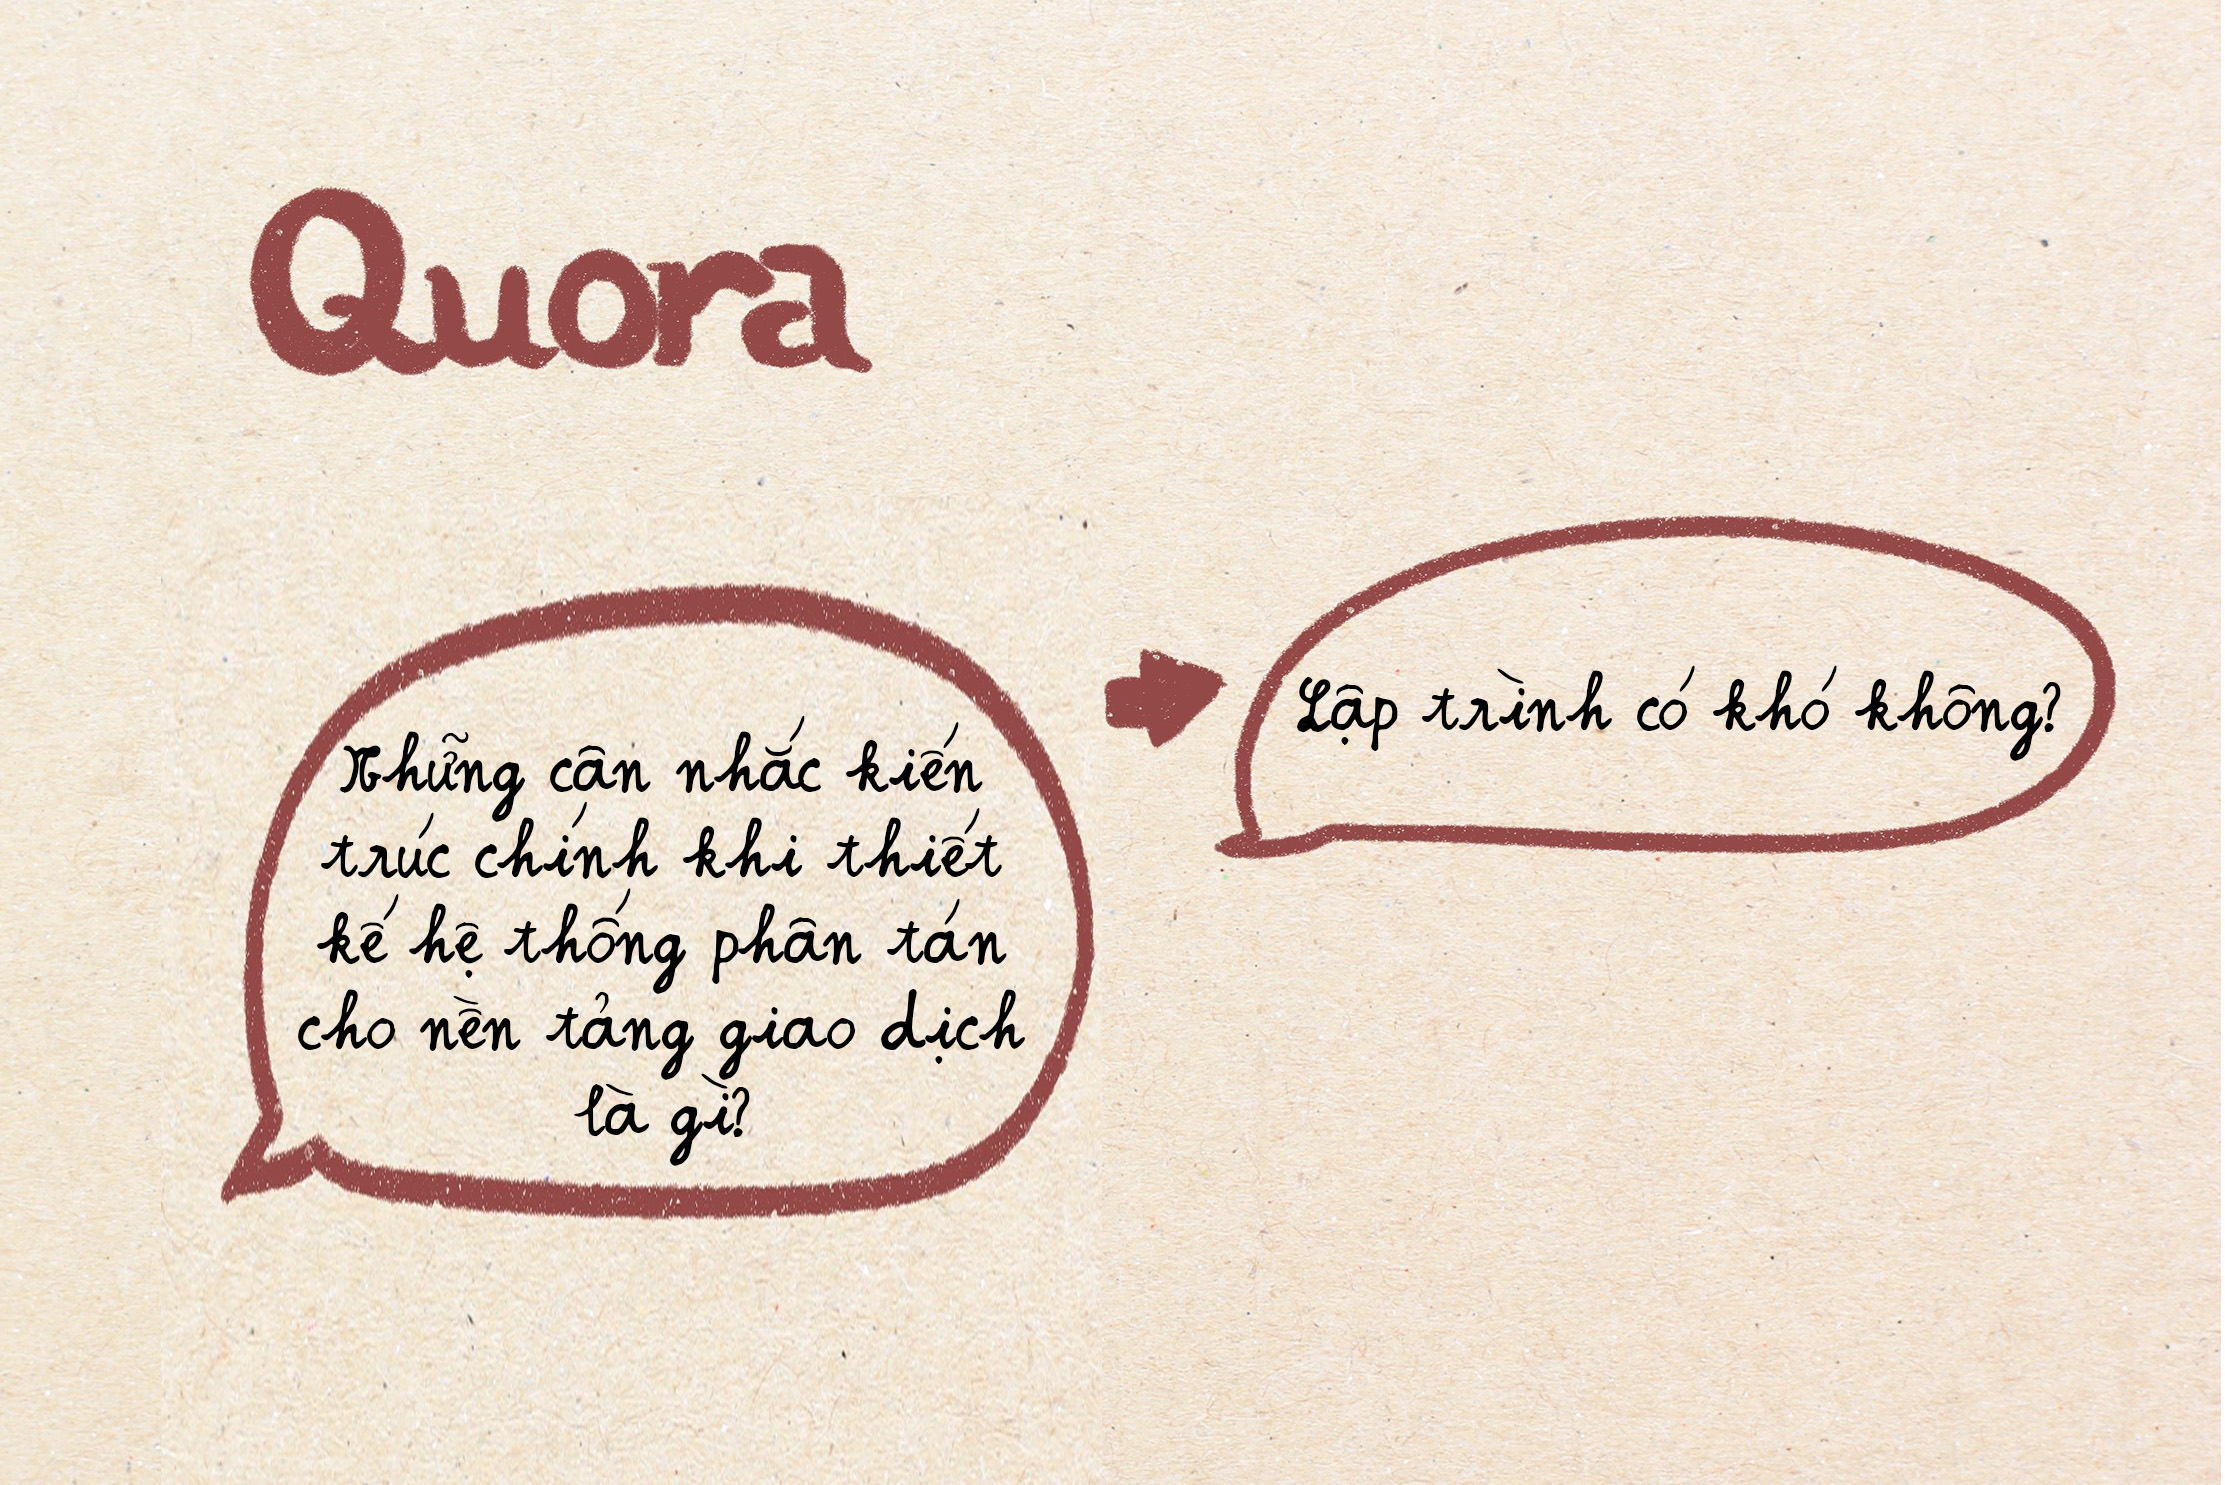 Quora
Những cân nhắc kiến
trúc chính khi thiết
kế hệ thống phân tán
cho nền tảng giao dịch
là gì?
Lập trình có khó không?